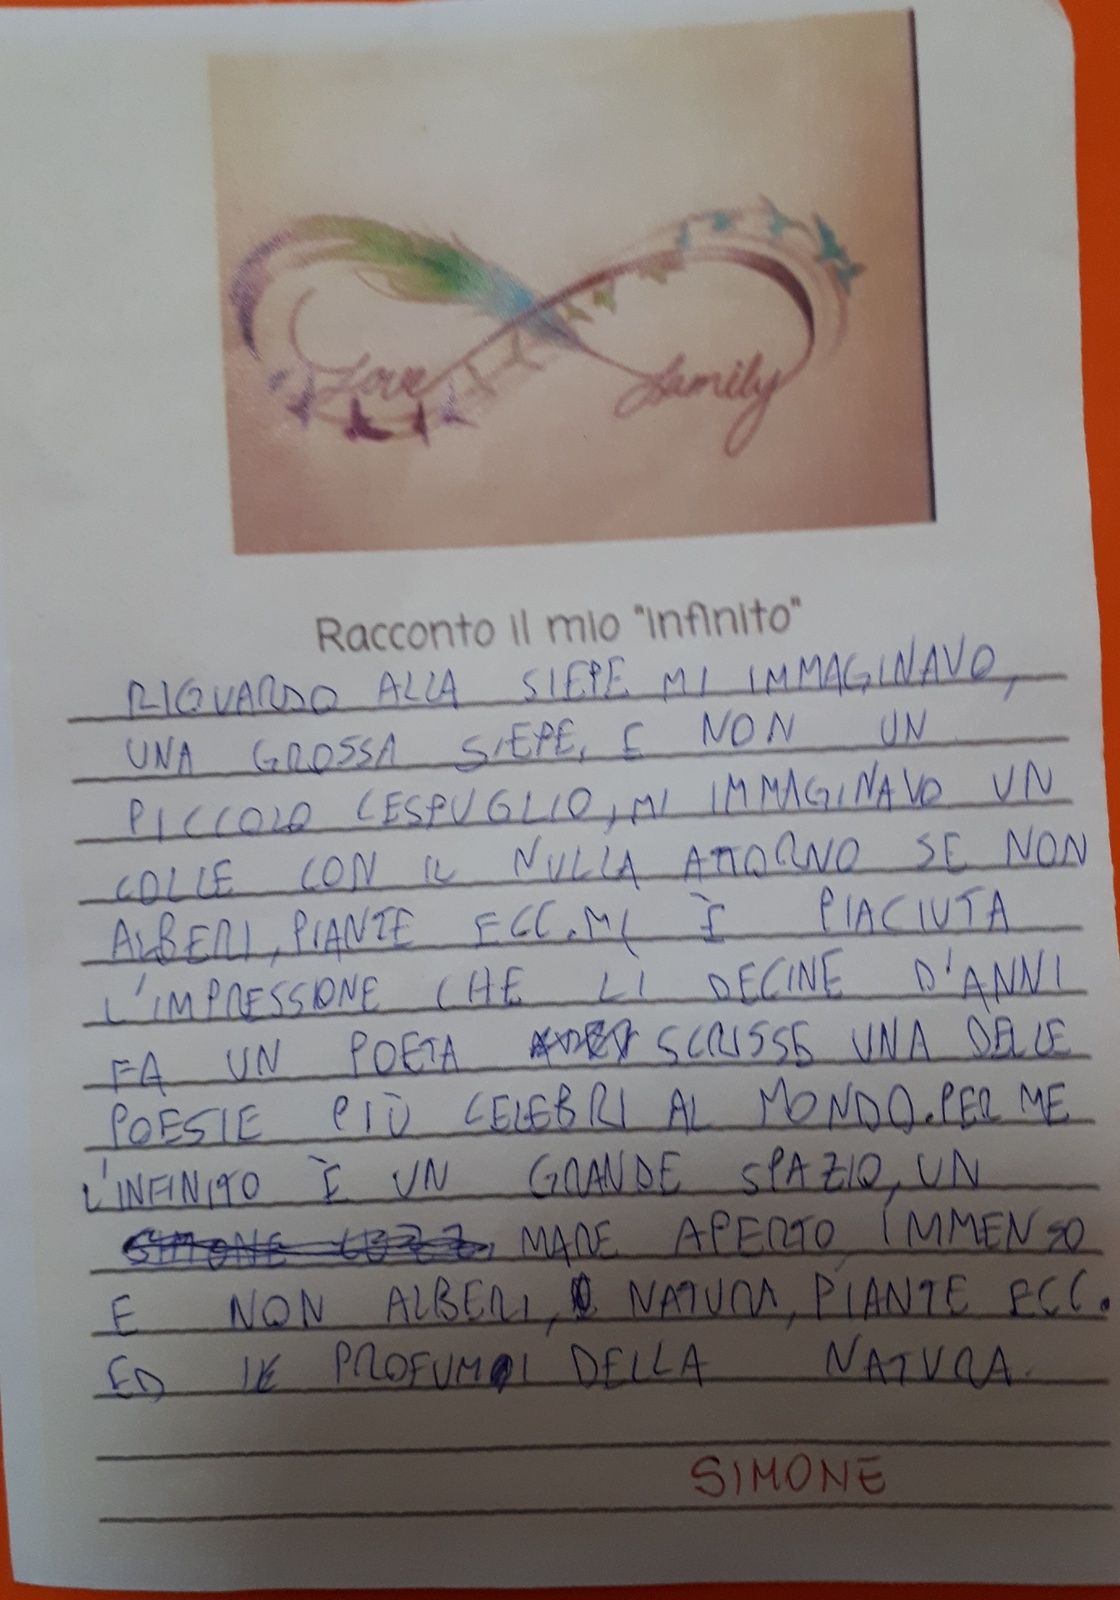 Love
family
Racconto il mio "infinito"
RIGUARDO ALLA SIEPE MI IMMAGINAVO,
UNA GROSSA SIEPE, E NON UN
PICCOLO CESPUGLIO, MI IMMAGINAVO UN
COLLE CON IL NULLA ATTORNO SE NON
ALBERI, PIANTE ECC. MI È PIACIUTA
L'IMPRESSIONE CHE LÌ DECINE D'ANNI
FA UN POETA SCRISSE UNA DELLE
POESIE PIÙ CELEBRI AL MONDO. PER ME
L'INFINITO È UN GRANDE SPAZIO, UN
MARE APERTO IMMENSO
E NON ALBERI, NATURA, PIANTE ECC.
ED IL PROFUMO DELLA NATURA.
SIMONE